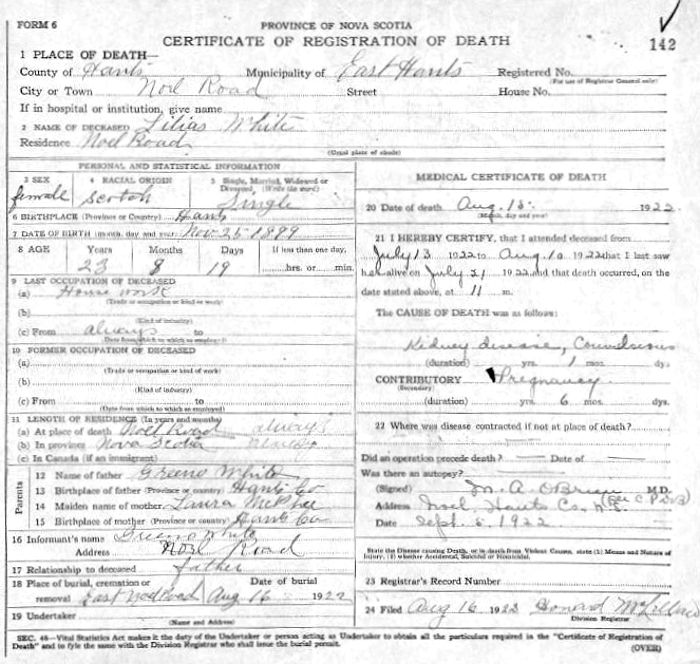 FORM 6
PROVINCE OF NOVA SCOTIA
CERTIFICATE OF REGISTRATION OF DEATH
142
1 PLACE OF DEATH—
County of Hants Municipality of East Hants Registered No.
(For use of Registrar General only)
City or Town Noel Road Street House No.
If in hospital or institution, give name
2 NAME OF DECEASED Lilias White
Residence Noel Road
(Usual place of abode)
PERSONAL AND STATISTICAL INFORMATION
3 SEX 4 RACIAL ORIGIN 5 Single, Married, Widowed or Divorced, (Write the word)
female Scotch Single
6 BIRTHPLACE (Province or Country) Hants
7 DATE OF BIRTH (month, day and year) Nov. 25 1899
8 AGE Years Months Days If less than one day,
23 8 19 hrs. or min.
9 LAST OCCUPATION OF DECEASED
(a) House work
(Trade or occupation or kind of work)
(b)
(Kind of industry)
(c) From always to
(Date from which to which so employed)
10 FORMER OCCUPATION OF DECEASED
(a)
(Trade or occupation or kind of work)
(b)
(Kind of industry)
(c) From to
(Date from which to which so employed)
11 LENGTH OF RESIDENCE (In years and months)
(a) At place of death Noel Road always
(b) In province Nova Scotia
(c) In Canada (if an immigrant)
Parents
12 Name of father Greeno White
13 Birthplace of father (Province or country) Hants Co
14 Maiden name of mother Laura McPhee
15 Birthplace of mother (Province or country) Hants Co
16 Informant's name Greeno White
Address Noel Road
17 Relationship to deceased father
18 Place of burial, cremation or removal Date of burial
East Noel Road Aug 16 1922
19 Undertaker
(Name and Address)
MEDICAL CERTIFICATE OF DEATH
20 Date of death Aug. 15. 1922
(Month, day and year)
21 I HEREBY CERTIFY, that I attended deceased from
July 13 1922 to Aug. 10 1922 that I last saw
her alive on July 21 1922 and that death occurred, on the
date stated above, at 11 m.
The CAUSE OF DEATH was as follows:
Kidney disease, Convulsions
(duration) yrs. 1 mos. dys.
CONTRIBUTORY Pregnancy
(Secondary)
(duration) yrs. 6 mos. dys.
22 Where was disease contracted if not at place of death?
Did an operation precede death? Date of
Was there an autopsy?
(Signed) M. A. O'Brien M.D.
Address Noel Hants Co, N.S.
Date Sept. 5, 1922
State the Disease causing Death, or in death from Violent Causes, state (1) Means and Nature of Injury, (2) whether Accidental, Suicidal or Homicidal.
23 Registrar's Record Number
24 Filed Aug 16 1923 Howard McLellan
Division Registrar
SEC. 48—Vital Statistics Act makes it the duty of the Undertaker or person acting as Undertaker to obtain all the particulars required in the "Certificate of Registration of
Death" and to fyle the same with the Division Registrar who shall issue the burial permit. (OVER)